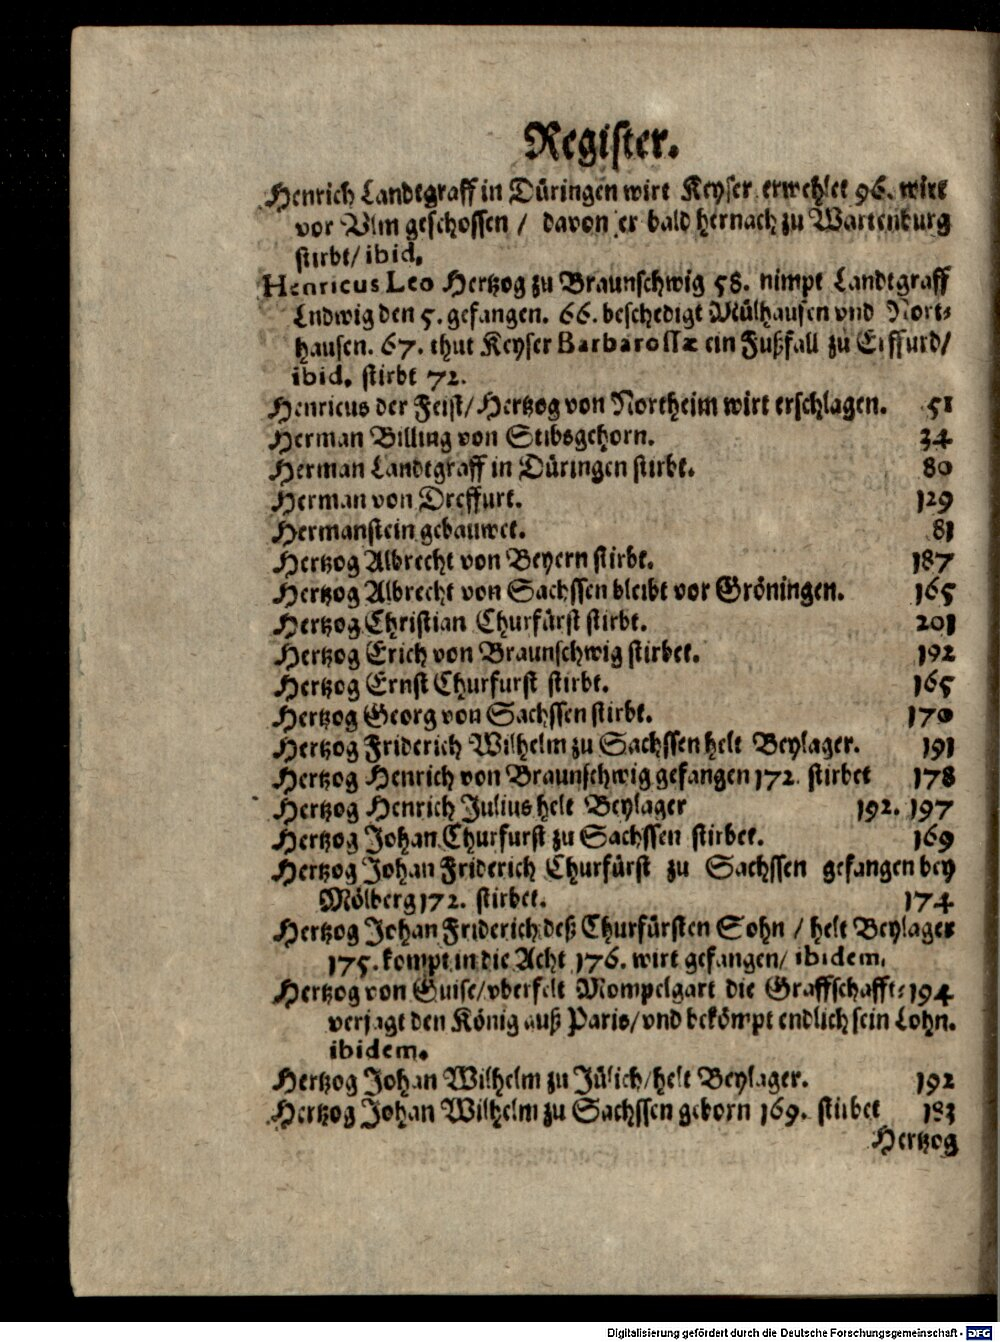 Register.
Henrich Landtgraff in Düringen wirt Keyser erwehlet 96. wirt
vor Ulm geschossen / davon er bald hernach zu Wartenburg
stirbt/ ibid.
Henricus Leo Hertzog zu Braunschwig 58. nimpt Landtgraff
Ludwig den 5. gefangen. 66. beschedigt Mülhausen vnd Nort⸗
hausen. 67. thut Keyser Barbarossæ ein Fußfall zu Erffurd/
ibid. stirbt 72.
Henricus der Feist/ Hertzog von Northeim wirt erschlagen. 51
Herman Billing von Stibsgehorn. 34
Herman Landtgraff in Düringen stirbt. 80
Herman von Dreffurt. 129
Hermanstein gebauwet. 81
Hertzog Albrecht von Beyern stirbt. 187
Hertzog Albrecht von Sachssen bleibt vor Gröningen. 165
Hertzog Christian Churfürst stirbt. 201
Hertzog Erich von Braunschwig stirbet. 192
Hertzog Ernst Churfurst stirbt. 165
Hertzog Georg von Sachssen stirbt. 170
Hertzog Friderich Wilhelm zu Sachssen helt Beylager. 191
Hertzog Henrich von Braunschwig gefangen 172. stirbet 178
Hertzog Henrich Julius helt Beylager 192. 197
Hertzog Johan Churfurst zu Sachssen stirbet. 169
Hertzog Johan Friderich Churfürst zu Sachssen gefangen bey
Mölberg 172. stirbet. 174
Hertzog Johan Friderich deß Churfürsten Sohn / helt Beylager
175. kompt in die Acht 176. wirt gefangen/ ibidem.
Hertzog von Guise/ vberfelt Mompelgart die Graffschafft⸗ 194
verjagt den König auß Paris/ vnd bekömpt endlich sein Lohn.
ibidem.
Hertzog Johan Wilhelm zu Jülich/ helt Beylager. 192
Hertzog Johan Wilhelm zu Sachssen geborn 169. stirbet 183
Hertzog
Digitalisierung gefördert durch die Deutsche Forschungsgemeinschaft - DFG